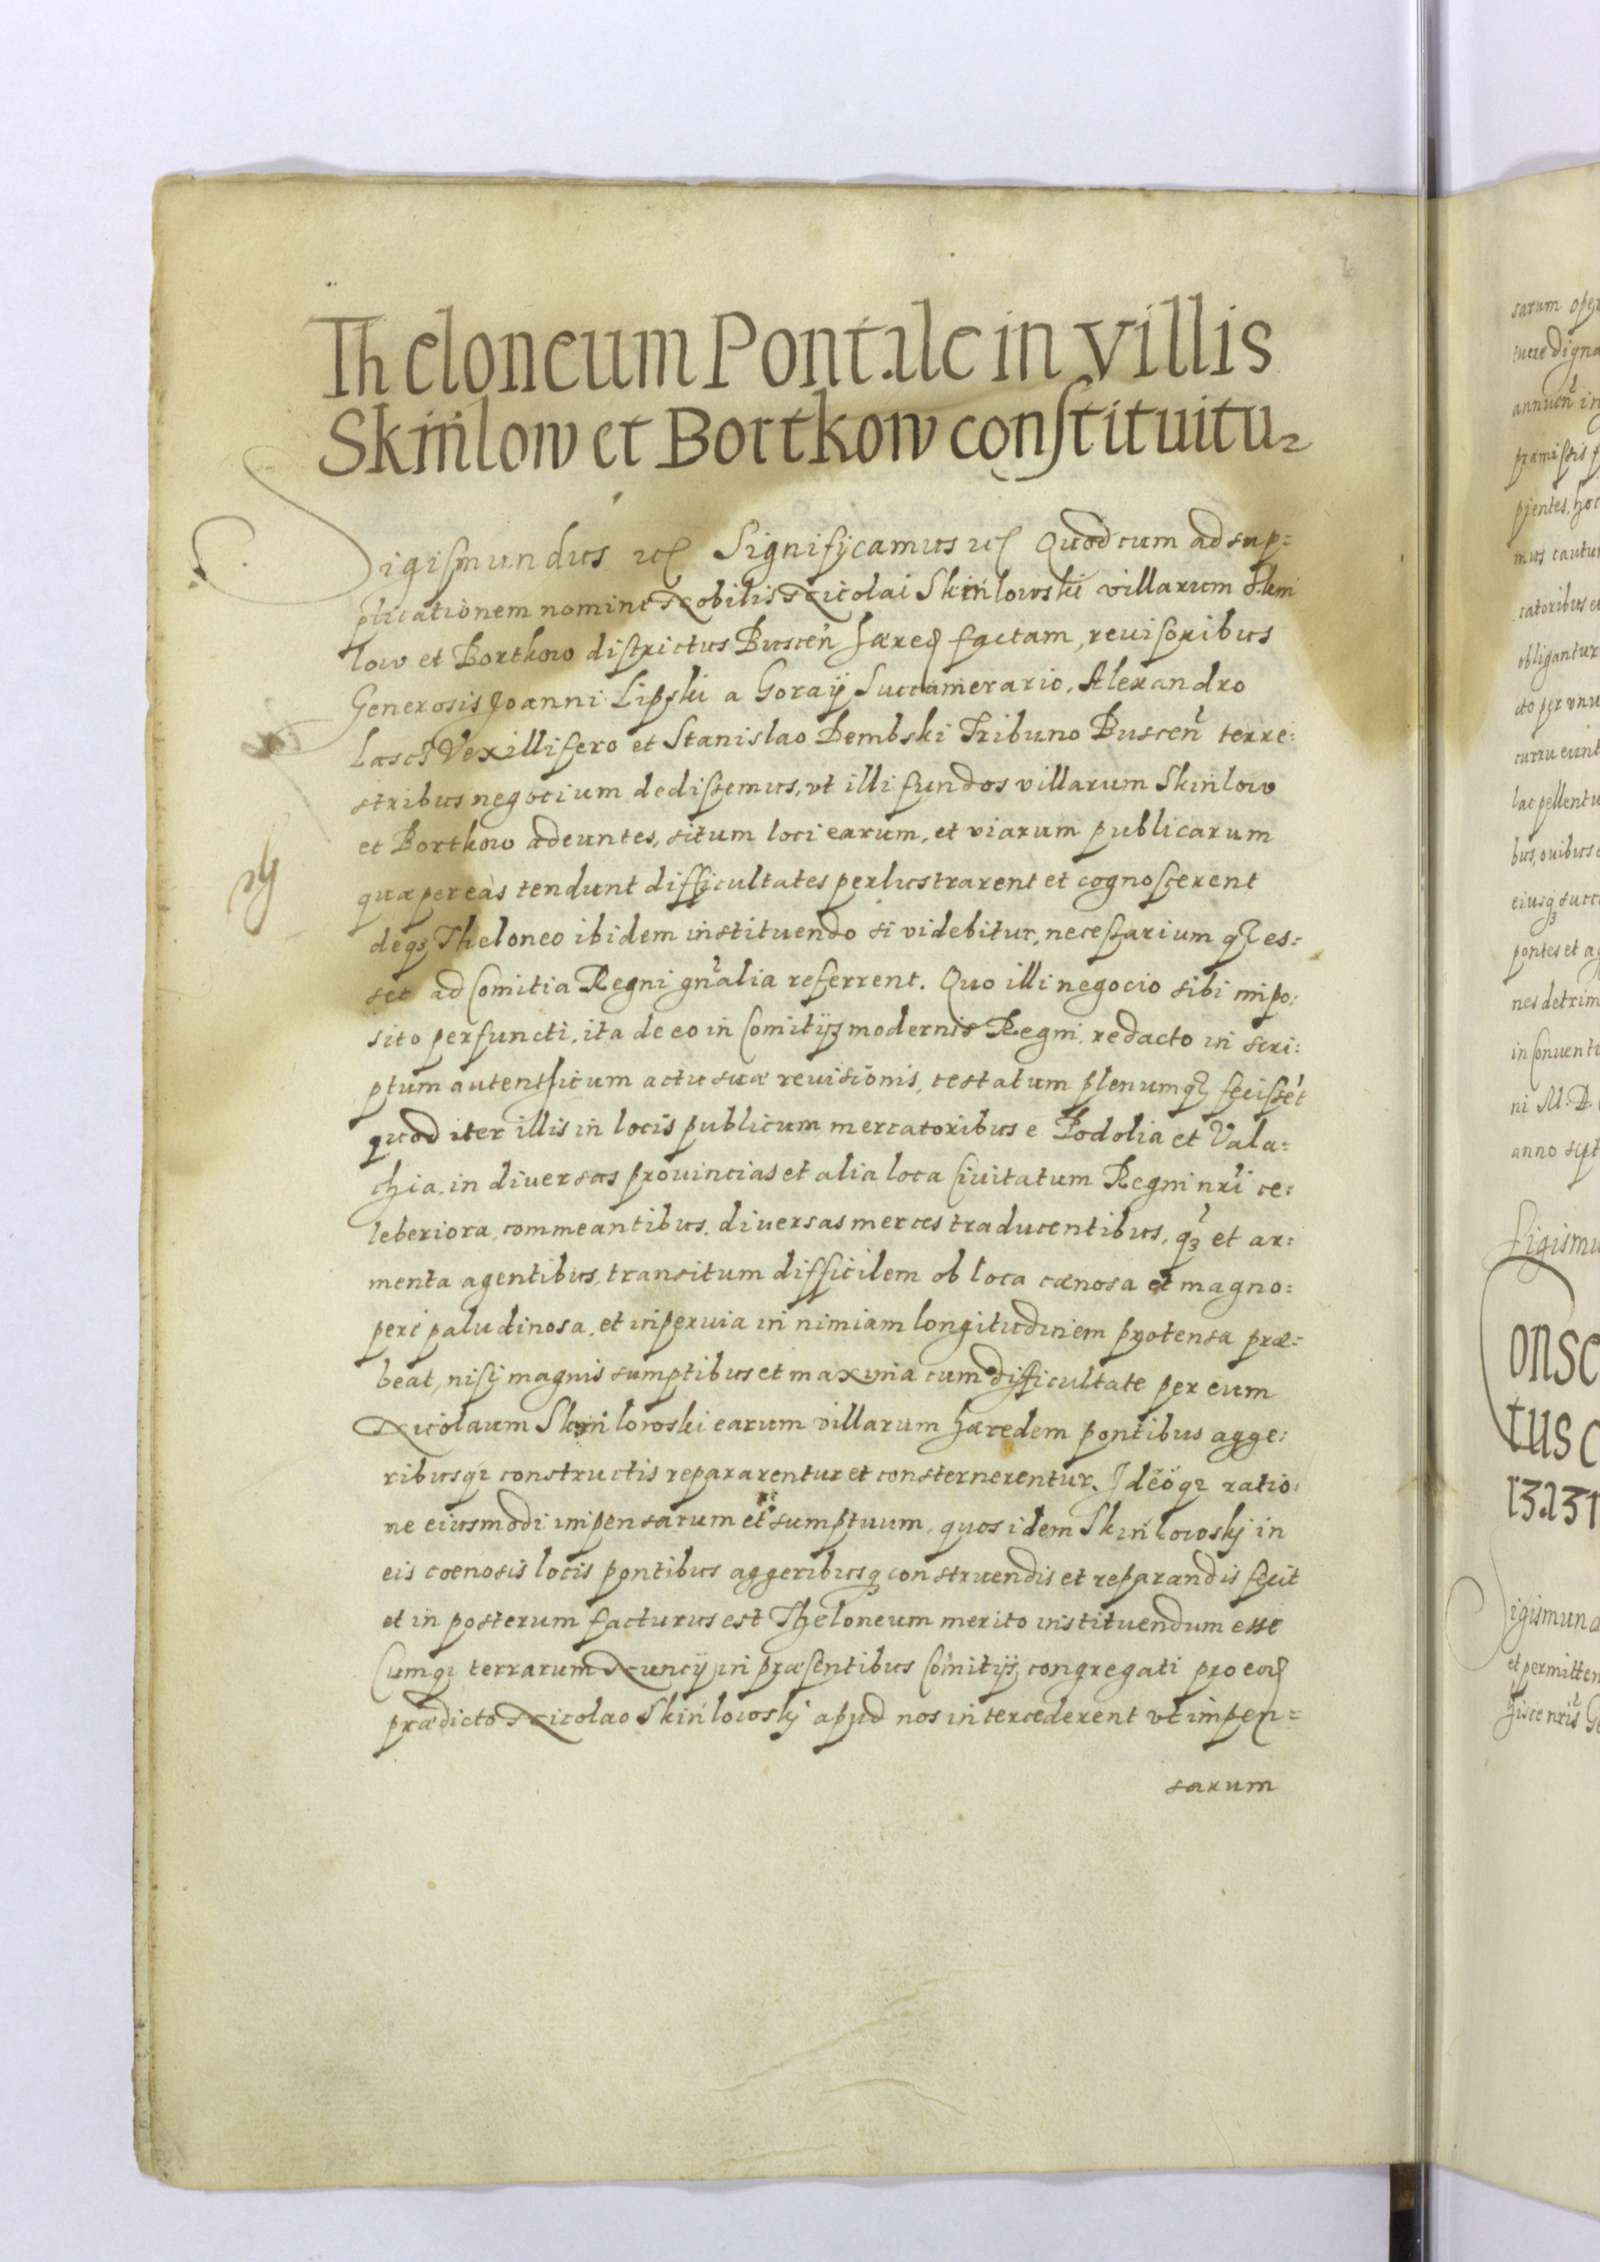 Theloneum Pontale in villis
Skinilow et Bortkow constituitur
Sigismundus etc Significamus etc Quod cum ad sup=
plicationem nomine Nobilis Nicolai Skinilowski villarum Skini
low et Bortkow districtus Buscen̄ hæred factam, reuisoribus
Generosis Joanni Lipski a Goraij Succamerario, Alexandro
Lascz Vexillifero et Stanislao Dembski Tribuno Buscen̄ terre:
stribus negocium dedissemus, vt illi fundos villarum Skinilow
et Bortkow adeuntes, situm loci earum, et viarum publicarum
quæ per eas tendunt difficultates perlustrarent et cognoscerent
deq3 Theloneo ibidem instituendo si videbitur, necessarium q̃ es:
set ad Comitia Regni gn̄alia referrent. Quo illi negocio sibi impo:
sito perfuncti, ita de eo in Comitijs modernis Regni, redacto in scri:
ptum autenthicum actu suæ reuisionis, testatum plenumq̃ fecissēt
quod iter illis in locis publicum mercatoribus e Podolia et Vala:
chia, in diuersas prouincias et alia loca Ciuitatum Regni nr̄i ce:
leberiora, commeantibus, diuersas merces traducentibus, q3 et ar:
menta agentibus, transitum difficilem ob loca cænosa et magno:
pere paludinosa, et inperuia in nimiam longitudinem protensa præ:
beat, nisi magnis sumptibus et maxima cum difficultate per eum
Nicolaum Skinilowski earum villarum hæredem pontibus agge:
ribusq3 constructis repararentur et consternerentur. Ideoq3 ratio:
ne eiusmodi impensarum et sumptuum, quos idem Skinilowskj in
eis coenosis locis pontibus aggeribusq construendis et reparandis fecit
et in posterum facturus est Theloneum merito instituendum esse
Cumq3 terrarum Nuncij in præsentibus Comitijs congregati pro eod
prædicto Nicolao Skinilowskj apud nos intercederent vt impen=
sarum
sarum
annuen̄ in
præmissis
pientes, hoc
catoribus et
obligantur
lac pellent
pontes et ag
nes detrim
in Conuent
ni M. D.
anno sept
Sigismu
onse
tus c
Sigismund
et permitten